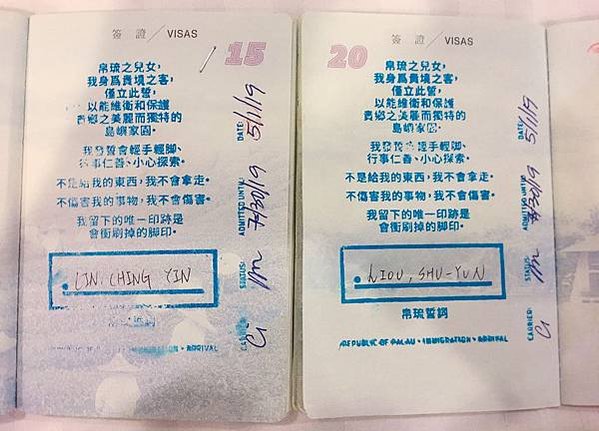 簽 證 / VISAS
15
帛琉之兒女,
我身爲貴境之客,
僅立此誓,
以能維衛和保護
貴鄉之美麗而獨特的
島嶼家園。
我發誓會輕手輕脚、
行事仁善、小心探索。
不是給我的東西,我不會拿走。
不傷害我的事物,我不會傷害。
我留下的唯一印跡是
會衝刷掉的脚印。
LIN, CHING YIN
IMMIGRATION • ARRIVAL
DATE: 5/1/19
ADMITTED UNTIL:
STATUS:
CARRIER: CI
簽 證 / VISAS
20
帛琉之兒女,
我身爲貴境之客,
僅立此誓,
以能維衛和保護
貴鄉之美麗而獨特的
島嶼家園。
我發誓會輕手輕脚、
行事仁善、小心探索。
不是給我的東西,我不會拿走。
不傷害我的事物,我不會傷害。
我留下的唯一印跡是
會衝刷掉的脚印。
LIOU, SHU-YUN
帛琉誓詞
REPUBLIC OF PALAU • IMMIGRATION • ARRIVAL
DATE: 5/1/19
ADMITTED UNTIL:
STATUS:
CARRIER: CI